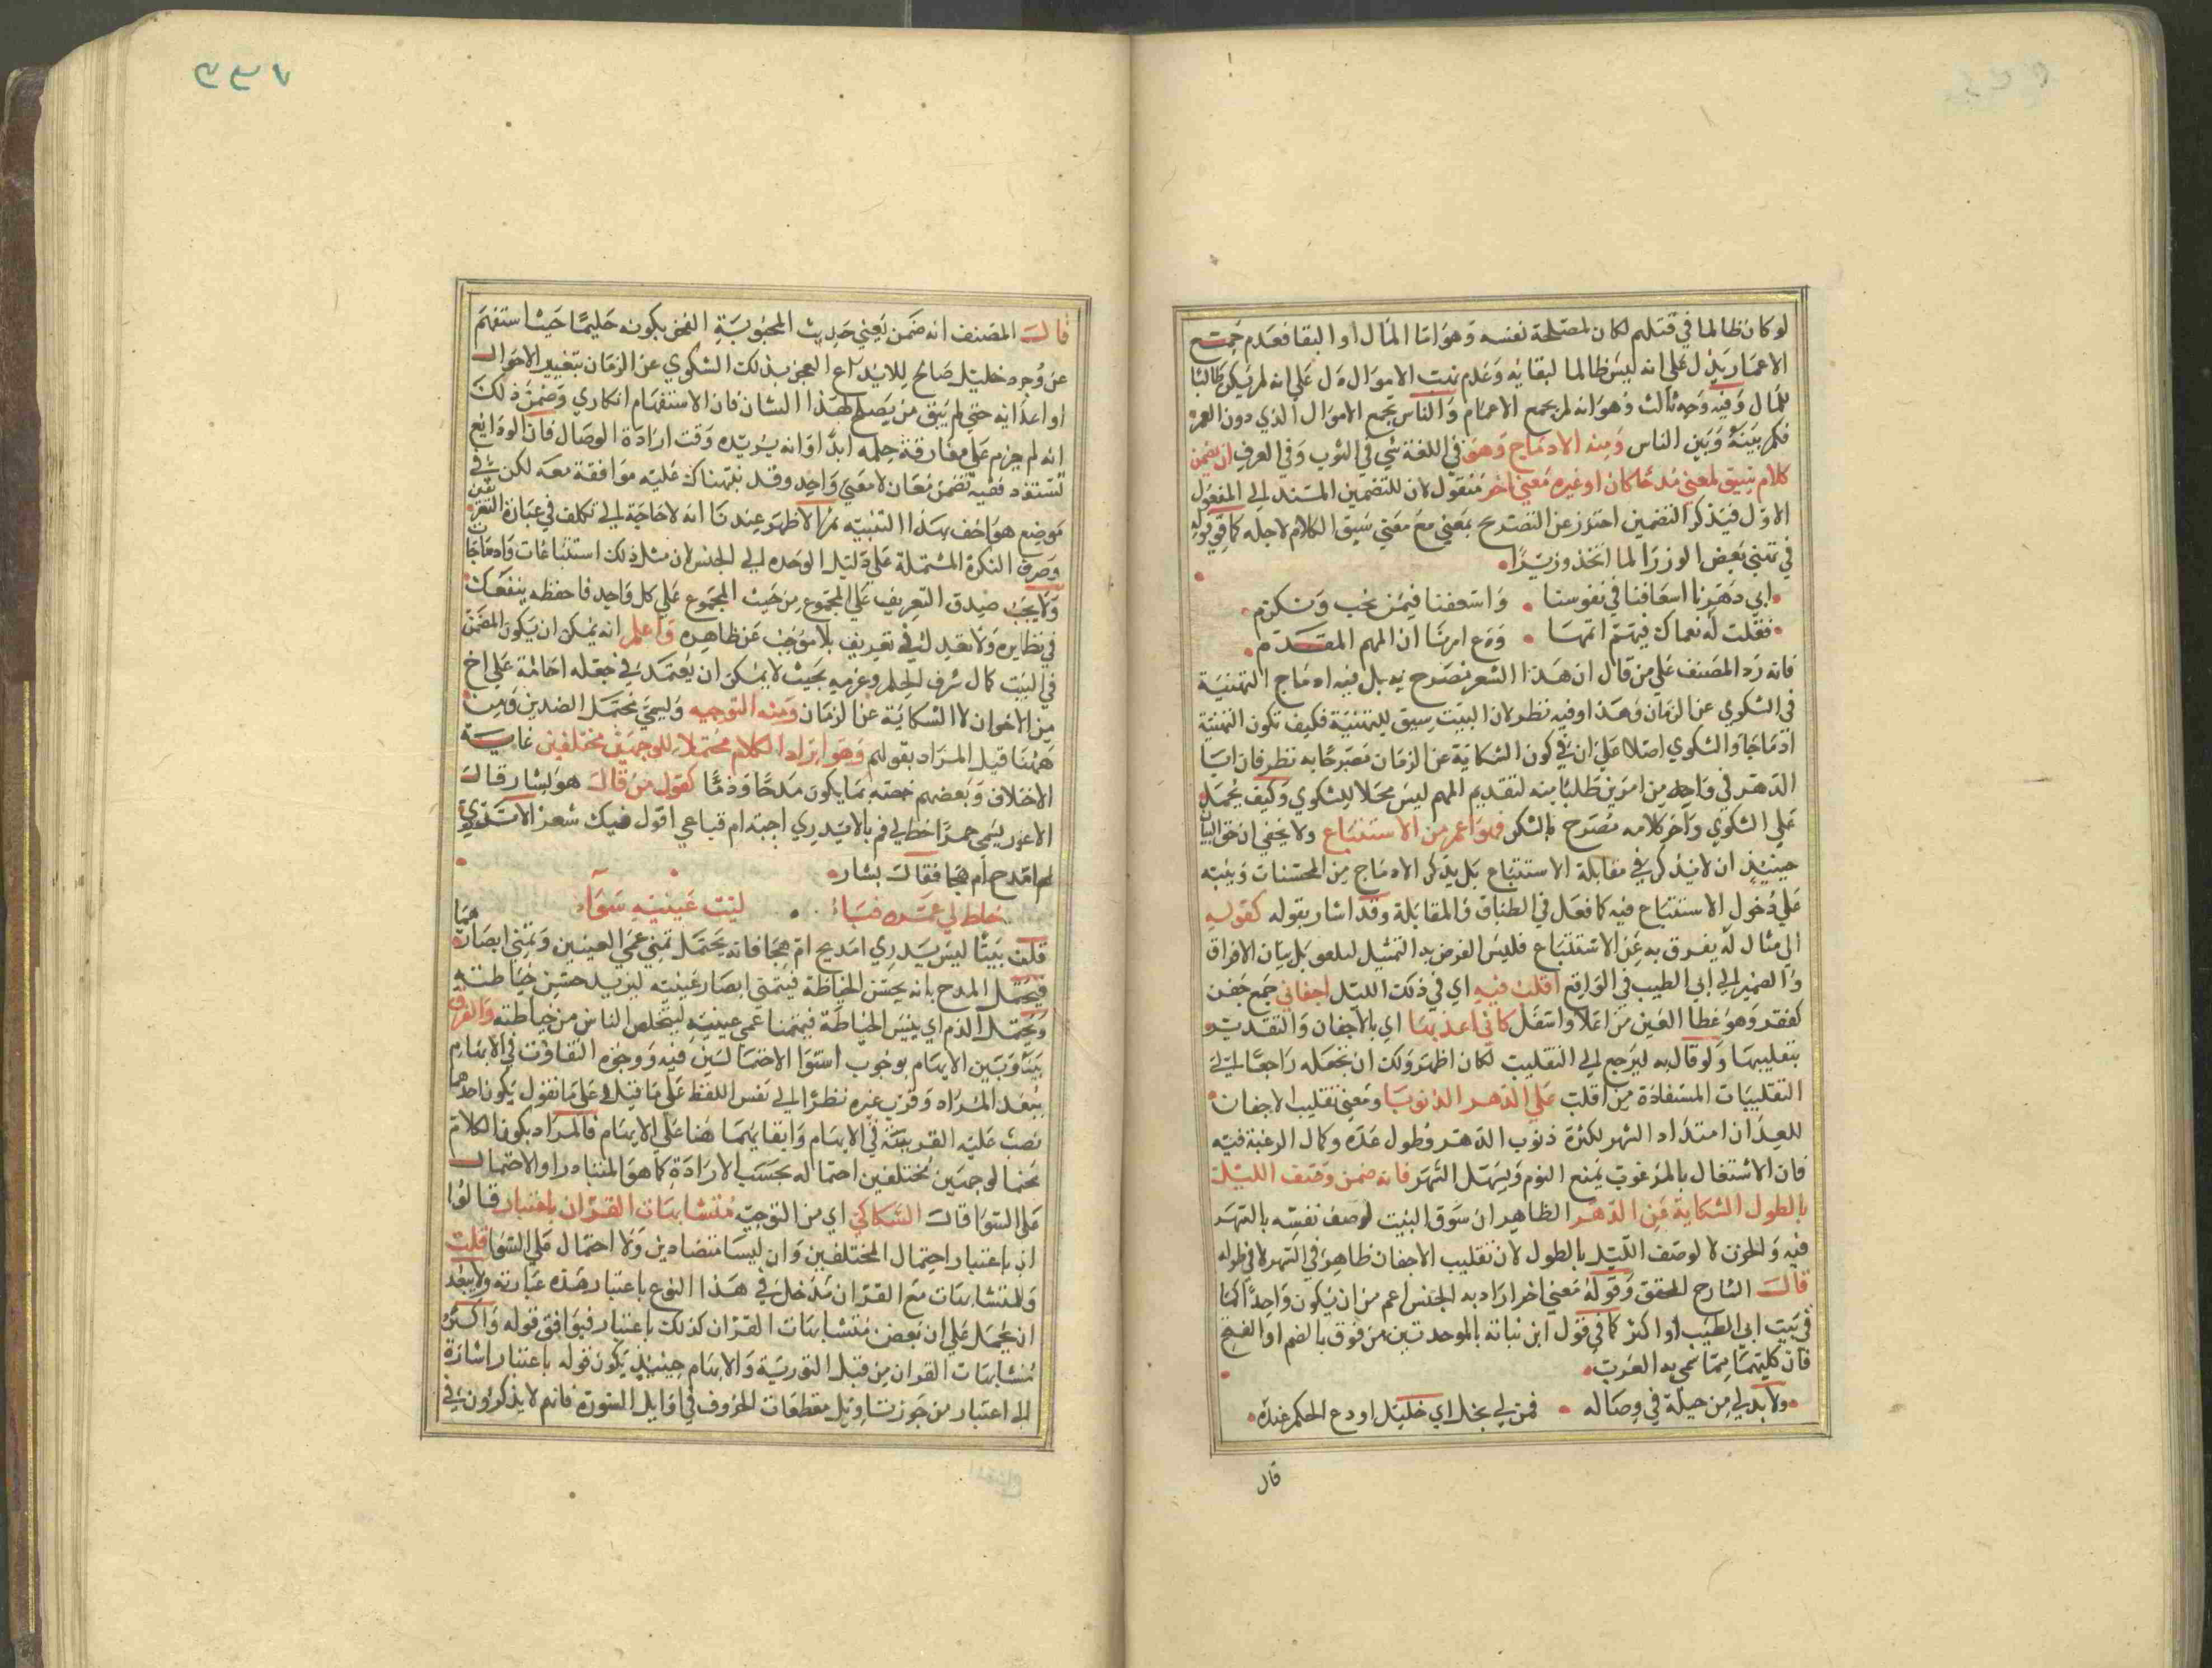 لو كان ظالما في قتلهم لكان لمصلحة نفسه وهو اما المال او البقا فعدم جمع
الاعمار يدل على انه ليس ظالما لبقائه وعدم نهب الاموال دل على انه لم يكن طالبا
للمال وفيه وجه ثالث وهو انه لم يجمع الاعمار والناس تجمع الاموال الذي دون العمر
فكم بينه وبين الناس ومنه الادماج وهو في اللغة شي في الثوب وفي العرف ان يضمن
كلام سيق لمعنى مدحا كان او غيره معنى اخر منقول لان للتضمين المسند الى المفعول
الاول فبذكر التضمين احترز عن التصريح بمعنى مع معنى سيق الكلام لاجله كما في قوله
في تهنئ بعض الوزرا لما اتخذ وزيرا
ابى دهرنا اسعافنا في نفوسنا واسعفنا فيمن نحب ونكرم
فقلت له نعماك فيهم اتمها ودع امرنا ان المهم المقدم
فانه رد المصنف على من قال ان هذا الشعر تصريح به بل فيه ادماج التهنية
في الشكوي عن الزمان وهذا وفيه نظر لان البيت سيق للتهنية فكيف تكون التهنية
ادماجا والشكوي اصلا على ان في كون الشكاية عن الزمان مصرحا به نظر فان ابيا
الدهر في واحد من امرين طلبا منه لتقديم المهم ليس محلا للشكوي وكيف يحمل
على الشكوي واخر كلامه مصرح بالشكر فهو اعم من الاستتباع ولا يخفى ان حق البيان
حينئذ ان لا يذكر في مقابلة الاستتباع بل يذكر الادماج من المحسنات وينبه
على دخول الاستتباع فيه كما فعل في الطباق والمقابلة وقد اشار بقوله كقوله
الى مثال له يفرق به عن الاستتباع فليس الغرض به التمثيل له بل بيان الافراق
والضمير الى ابي الطيب في الواقع اقلب فيه اي في ذلك الليل اجفاني جمع جفن
كفقر وهو غطا العين من اعلا واسفل كاني اعد بها اي بالاجفان والتقدير
بتقليبها ولو قال به ليرجع الى التقليب لكان اظهر ولك ان تجعله راجعا الى
التقليبات المستفادة من اقلب على الدهر الذنوبا ومعنى تقليب الاجفان
للعد ان امتداد السهر لكثرة ذنوب الدهر وطول عده وكمال الرغبة فيه
فان الاشتغال بالمرغوب يمنع النوم ويسهل السهر فانه ضمن وصف الليل
بالطول الشكاية من الدهر الظاهر ان سوق البيت لوصف نفسه بالسهر
فيه والحزن لا لوصف الليل بالطول لان تقليب الاجفان ظاهر في السهر لا في طوله
قال الشارح المحقق وقوله معنى اخر اراد به الجنس اعم من ان يكون واحدا كما
في بيت ابي الطيب او اكثر كما في قول ابن نباته بالموحدتين من فوق بالضم او الفتح
فان كليهما مما سمي به العرب
ولا بد لي من حيلة في وصاله فمن لي بخل اي خليل اودع الحكم عنده
قال
قال المصنف انه ضمن يعني حديث المحبوبية الفخر بكونه حليما حيث استفهم
عن وجود خليل صالح للايداع المعجز بذلك الشكوي عن الزمان بتغيير الاحوال
او اعدائه حتى لم يبق من يصلح لهذا الشان فان الاستفهام انكاري وضمن ذلك
انه لم يعزم على مفارقة حلمه ابدا وانه يريده وقت ارادة الوصال فان الودايع
تسترد ففيه تضمن معان لا معنى واحد وقد نبهناك عليه موافقة معه لكن في
موضع هو احق بهذا التنبيه ثم الاظهر عندنا انه لا حاجة الى تكلف في عبارة التعريف
وصرف النكرة المشتملة على دليل الوحده الى الجنس لان مثل ذلك استتباعات وادماجات
ولا يجب صدق التعريف على المجموع من حيث المجموع على كل واحد فاحفظه ينفعك
في نظايره ولا تعدل في تعريف بلا موجب عن ظاهره واعلم انه يمكن ان يكون المضمن
في البيت كمال شرف الحلم وعزمه بحيث لا يمكن ان يعتمد في جعله امانة على اخ
من الاخوان لا الشكاية عن الزمان ومنه التوجيه ويسمى محتمل الضدين ومن
ههنا قيل المراد بقولهم وهو ايراد الكلام محتملا للوجهين مختلفين غاية
الاختلاف وبعضهم خصه بما يكون مدحا وذما كقول من قال هو بشار قال
الاعور يسمى عمرا خط لي قبا لا يدري اجبة ام قبا حي اقول فيك شعرا لا تدري
امدح ام هجا فقال بشار
خاط لي عمرو قباء ليت عينيه سواء
قلت بيتا ليس يدري امديح ام هجا فانه يحتمل تمني عمي العينين وتمني ابصارهما
فيحتمل المدح بانه يحسن الخياطة فيتمنى ابصار عينيه ليزيد حسن خياطته
ويحتمل الذم اي بئيس الخياطة فيتمنا عمي عينيه ليتخلص الناس من خياطته والفرق
بينه وبين الايهام بوجوب استوا الاحتمالين فيه ووجوه التفاوت في الايهام
ببعد المراد وقرب غيره نظرا الى نفس اللفظ على ما قيل وعلى ما نقول يكون احدهما
نصب عليه القرينة في الايهام وابقائهما هنا على الابهام فالمراد بكون الكلام
محتملا لوجهين مختلفين احتماله بحسب الارادة كما هو المتبادر او الاحتمال
على السوا قال السكاكي اي من التوجيه متشابهات القران باعتبار قالوا
اي باعتبار احتمال المختلفين وان ليسا متضادين ولا احتمال على السوا قلت
وللمتشابهات مع القران مدخل في هذا النوع باعتبار هذه عبارته ولا يبعد
ان يحمل على ان بعض متشابهات القران كذلك باعتبار فيوافق قوله واكثر
متشابهات القران من قبل التورية والايهام حينئذ يكون قوله باعتبار اشارة
الى اعتبار من جوز تاويل مقطعات الحروف في اوايل السورة فانهم لا يذكرون في